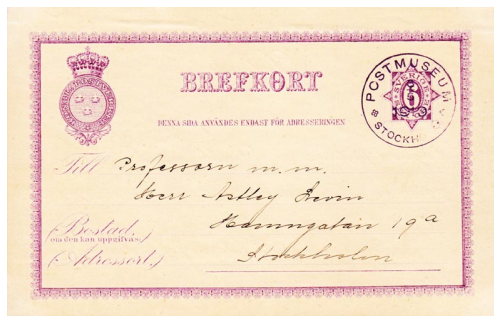 BREFKORT
DENNA SIDA ANVÄNDES ENDAST FÖR ADRESSERINGEN
POSTMUSEUM
STOCKHOLM
SVERIGE
Till Professorn m. m.
Herr Astley Levin
(Bostad,
om den kan uppgifvas)
Hamngatan 19a
(Adressort.)
Stockholm